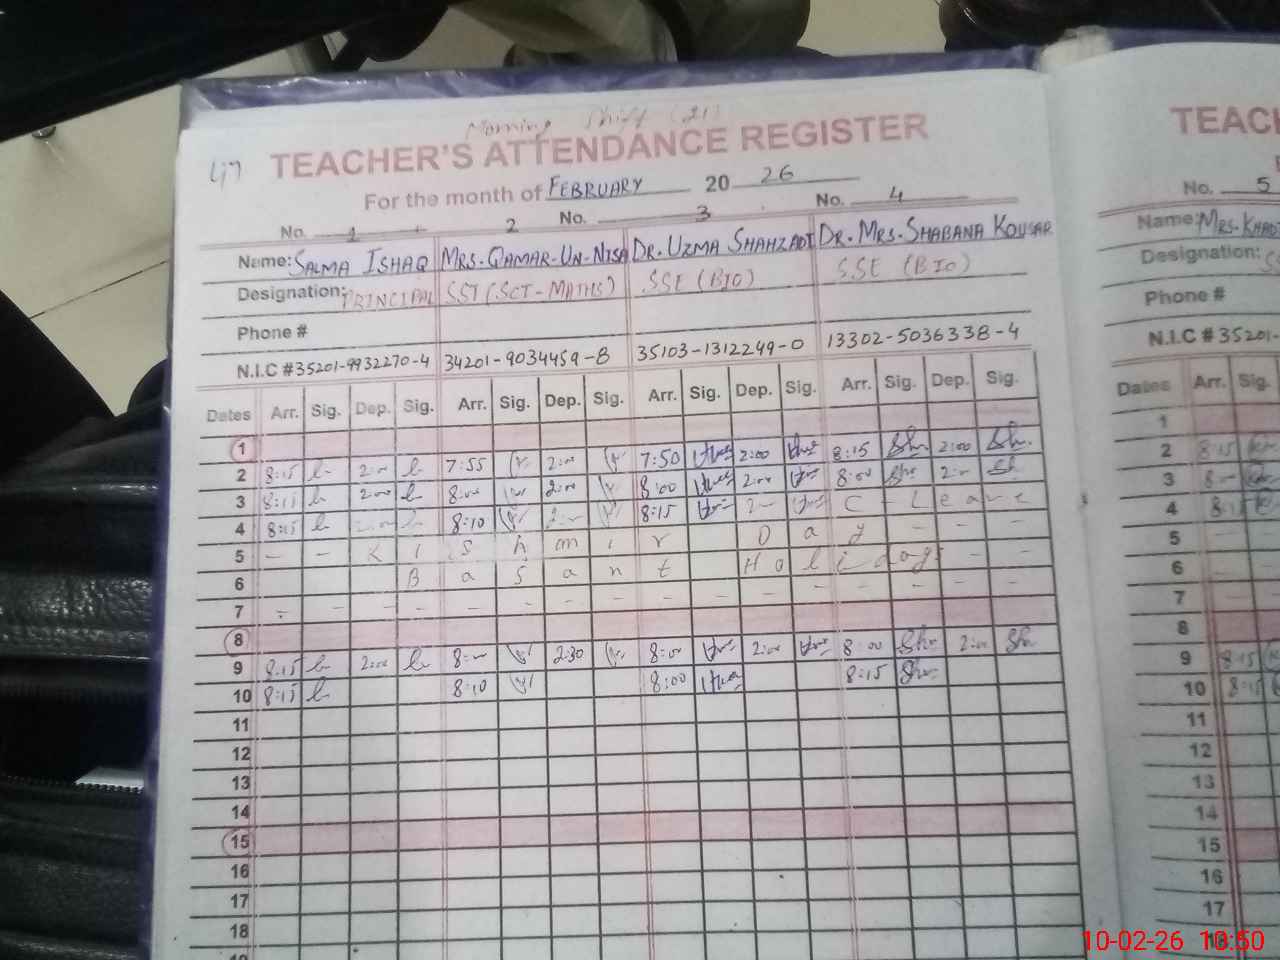 Morning Shift (21)
TEACHER'S ATTENDANCE REGISTER
For the month of FEBRUARY 20 26
No. 1 2 No. 3 No. 4
Name: SALMA ISHAQ MRS. QAMAR-UN-NISA DR. UZMA SHAHZADI DR. MRS. SHABANA KOUSAR
Designation: PRINCIPAL SST (SCI-MATHS) SSE (BIO) SSE (BIO)
Phone #
N.I.C # 35201-9932270-4 34201-9034459-8 35103-1312249-0 13302-5036338-4
Dates Arr. Sig. Dep. Sig. Arr. Sig. Dep. Sig. Arr. Sig. Dep. Sig. Arr. Sig. Dep. Sig.
1
2 8:15 2:00 7:55 2:00 7:50 2:00 8:15 Sh. 2:00 Sh.
3 8:15 2:00 8:00 2:00 8:00 2:00 8:00 Sh. 2:00 Sh.
4 8:15 2:00 8:10 2:00 8:15 2:00 C - Leave
5 - - K i s h m i r D a y - - -
6 B a s a n t H o l i d a y s - -
7 - - - - - - - - - - - - - - - -
8
9 8:15 2:00 8:00 2:30 8:00 2:00 8:00 Sh. 2:00 Sh.
10 8:15 8:10 8:00 8:15 Sh.
11
12
13
14
15
16
17
18
19
TEACH
No. 5
Name: MRS. KHAD
Designation: SS
Phone #
N.I.C # 35201-
Dates Arr. Sig.
1
2 8:15
3 8:00
4 8:15
5
6
7
8
9 8:15
10 8:15
11
12
13
14
15
16
17
18
10-02-26 10:50